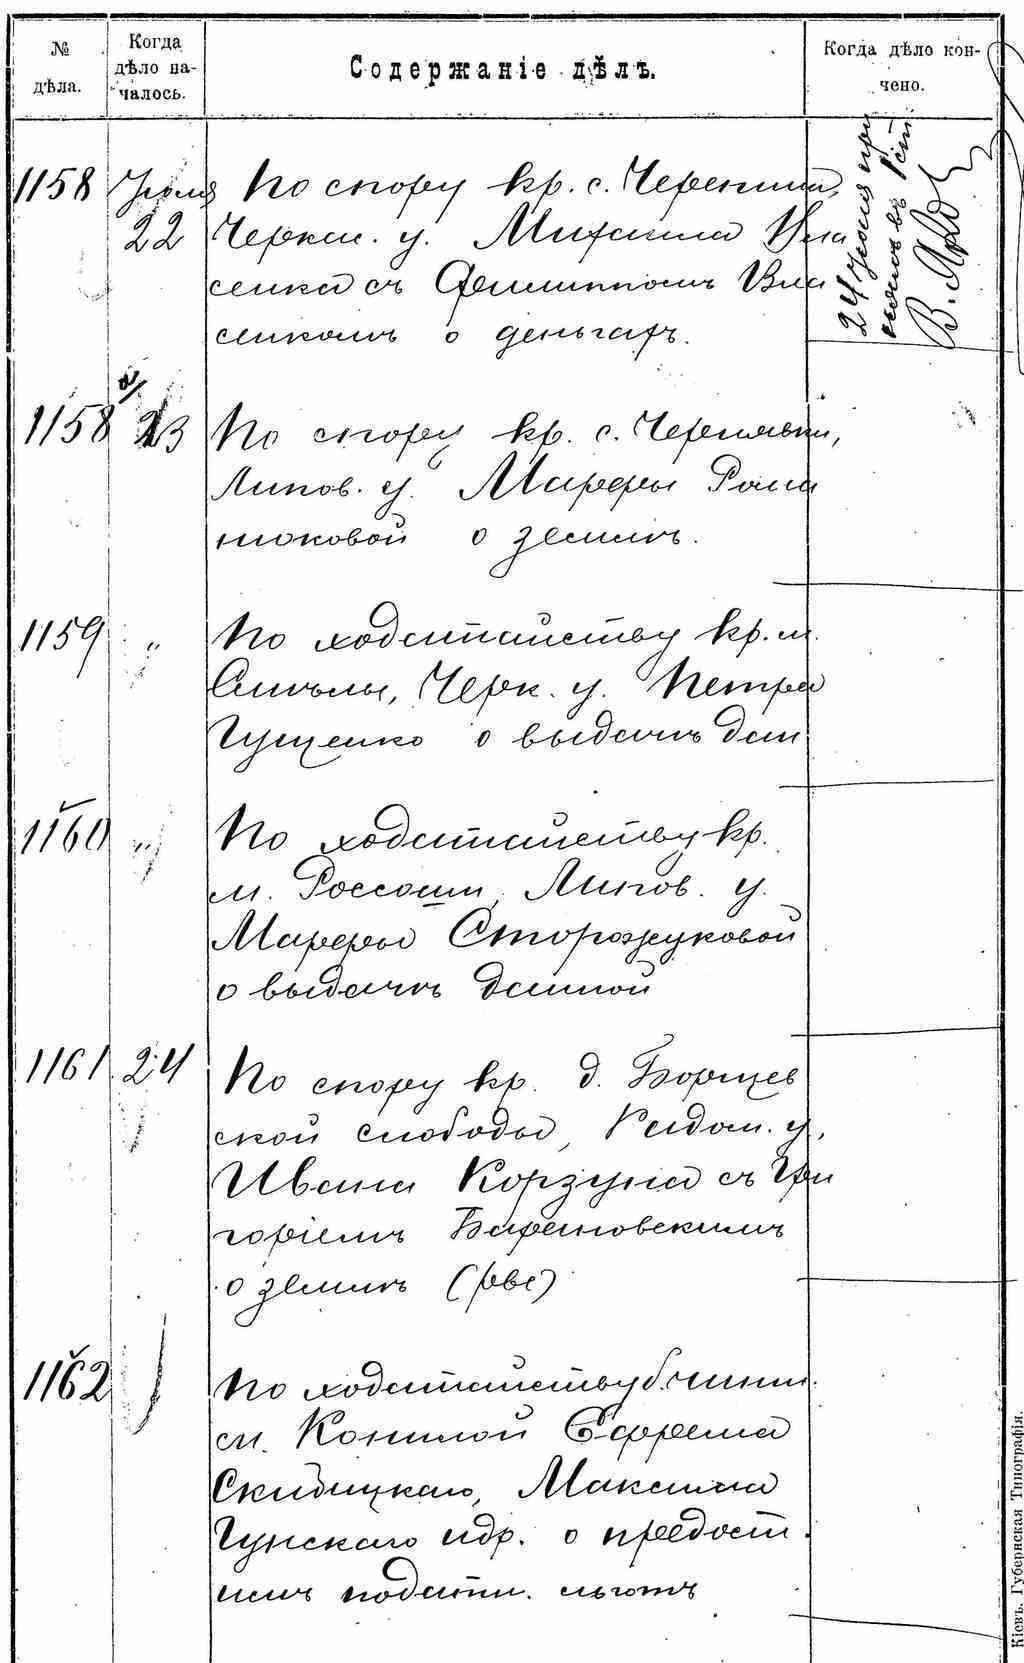 № дѣла.
Когда дѣло на-
чалось.
Содержаніе дѣлъ.
Когда дѣло кон-
чено.
1158 Іюля 22
По спору кр. с. Черепина,
Черкас. у. Михаила Вла
сенка съ Филиппомъ Вла
сенкомъ о деньгахъ.
24 іюля при
В. Яко
1158 а/ 23
По спору кр. с. Чернявки,
Липов. у. Марфы Рома
нюковой о землѣ.
1159 „
По ходатайству кр. м.
Смѣлы, Черк. у. Петра
Гущенко о выдачѣ дан
1160 „
По ходатайству кр.
м. Россоши, Липов. у.
Марфы Сторожуковой
о выдачѣ данной
1161 24
По спору кр. д. Борщев
ской слободы, Радом. у.
Ивана Корзуна съ Гри
горіемъ Барановскимъ
о землѣ (рвс)
1162
По ходатайству б. чинш.
м. Конелой Ефрема
Скибицкаго, Максима
Гунскаго идр. о предост.
имъ податн. льготъ
Кіевъ. Губернская Типографія.